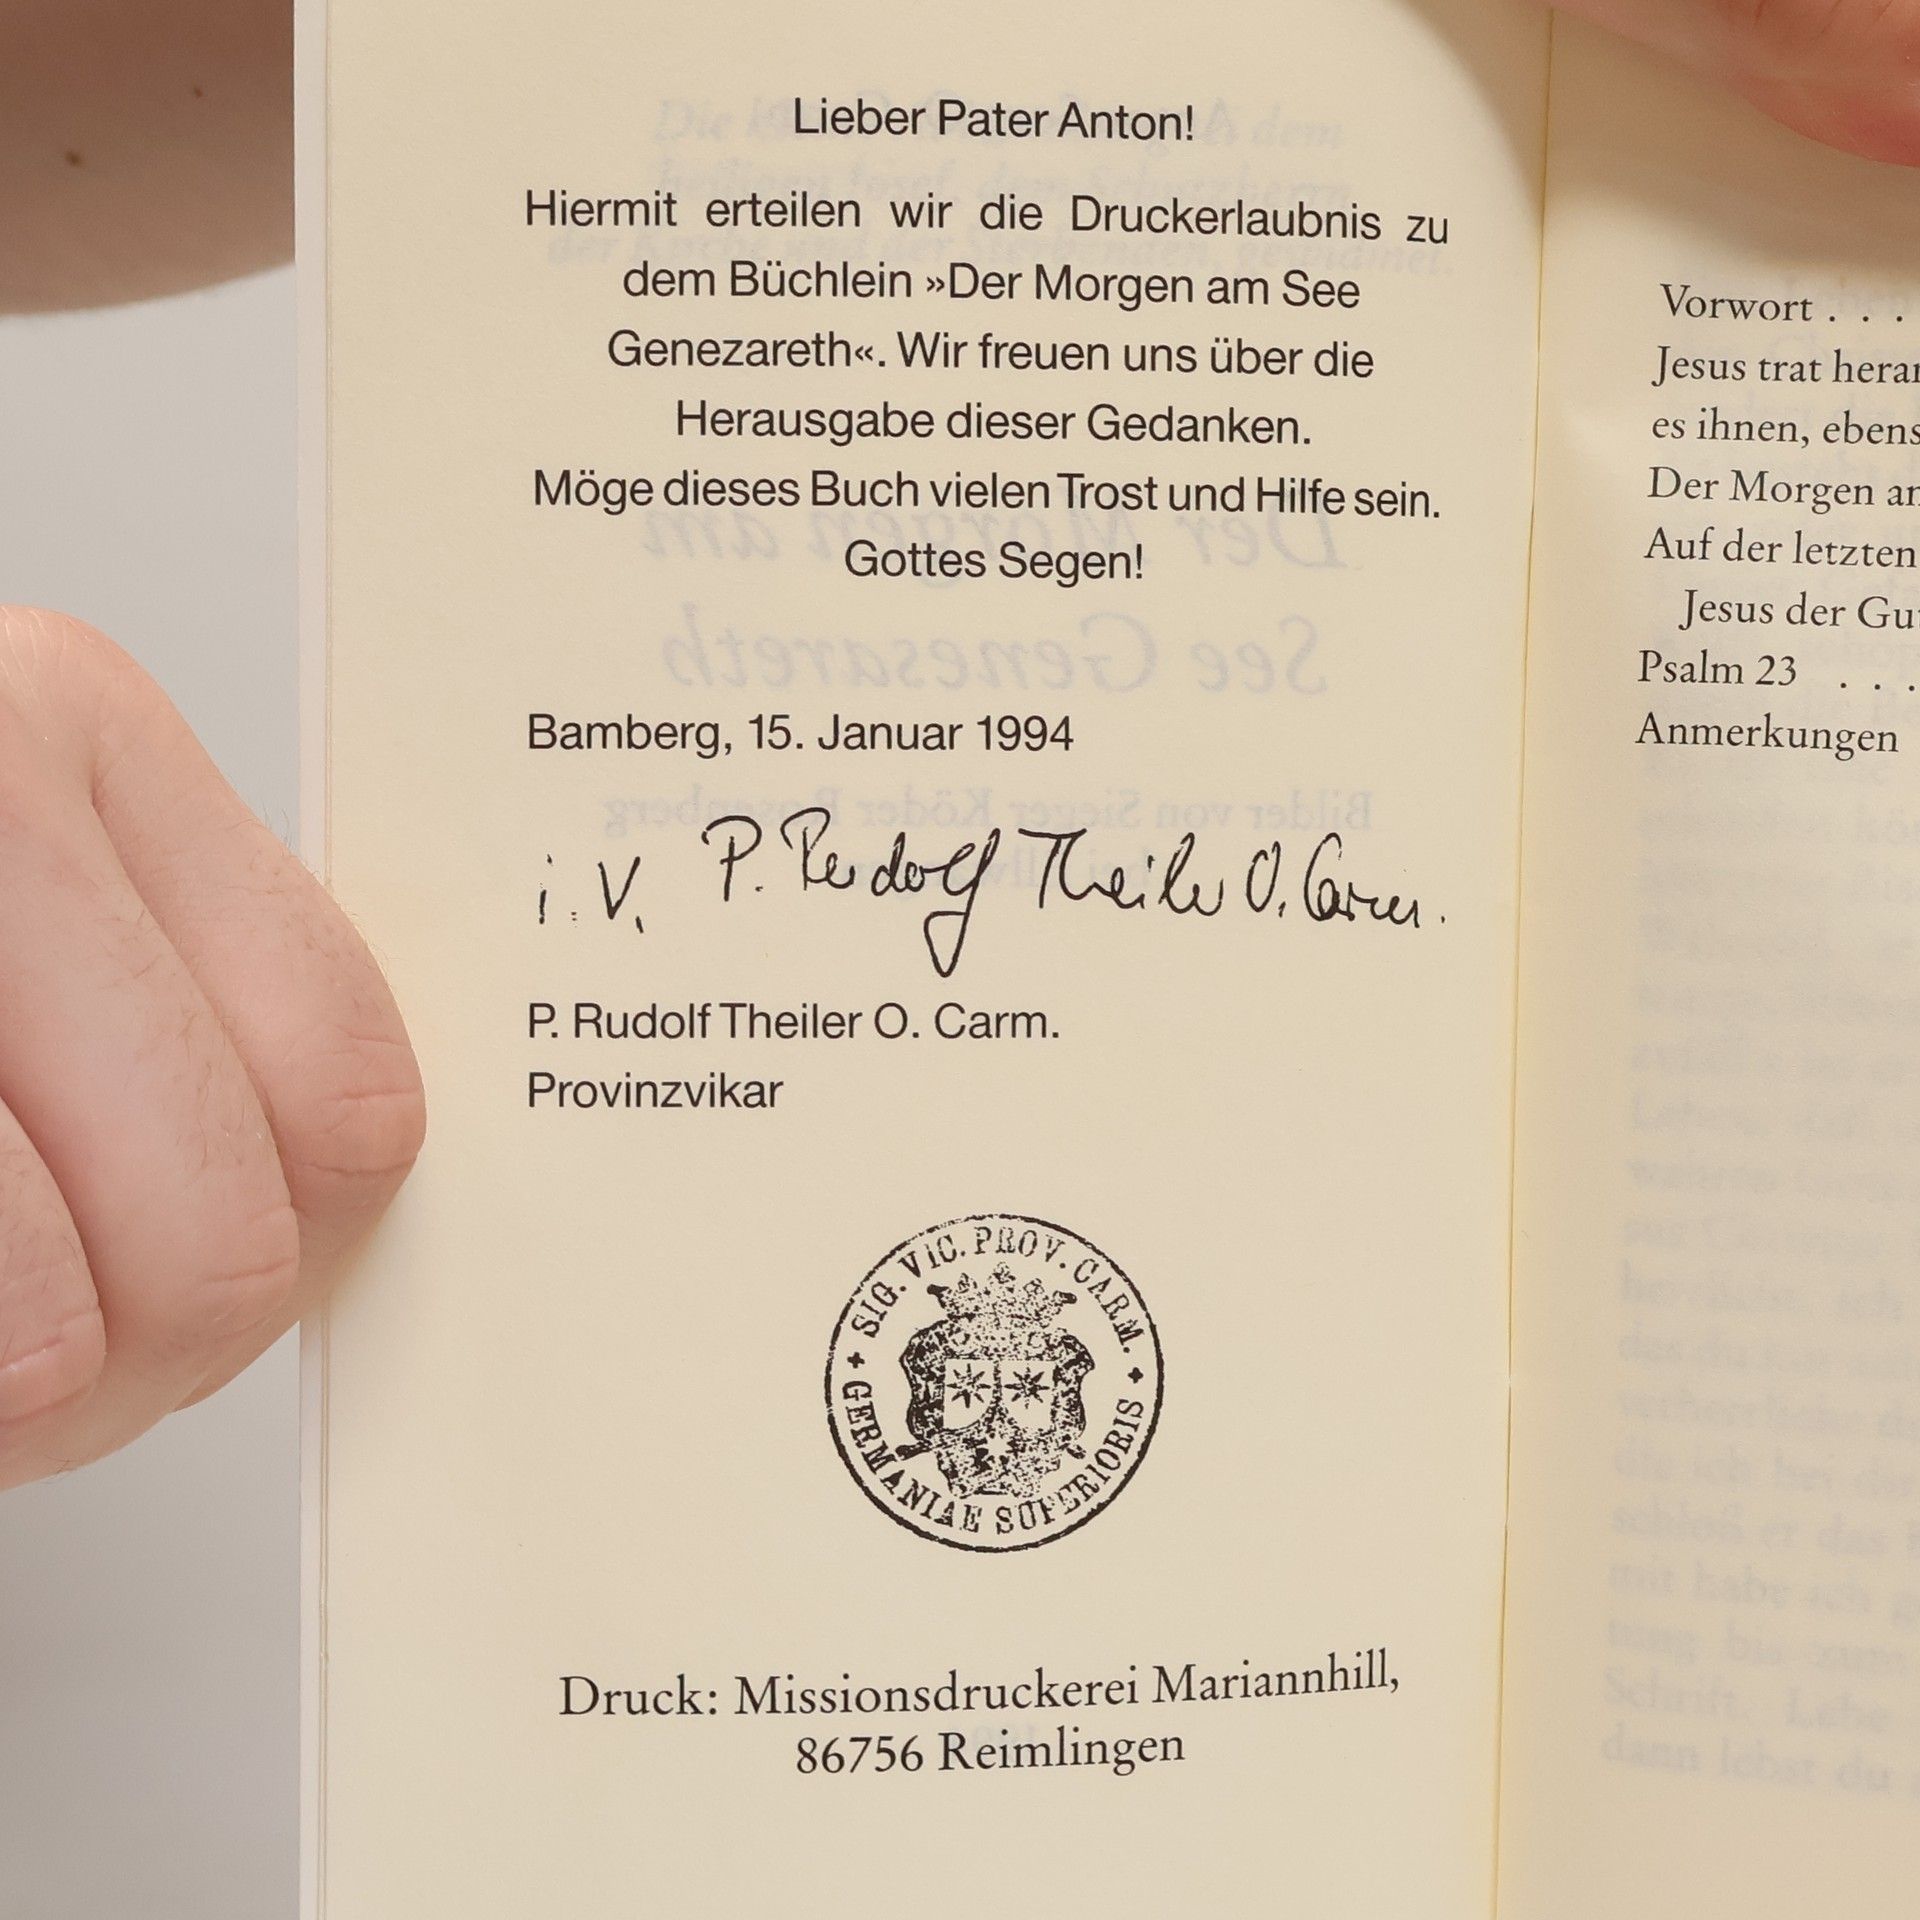 Lieber Pater Anton!
Hiermit erteilen wir die Druckerlaubnis zu
dem Büchlein »Der Morgen am See
Genezareth«. Wir freuen uns über die
Herausgabe dieser Gedanken.
Möge dieses Buch vielen Trost und Hilfe sein.
Gottes Segen!
Bamberg, 15. Januar 1994
i. V. P. Rudolf Theiler O. Carm.
P. Rudolf Theiler O. Carm.
Provinzvikar
SIG. VIC. PROV. CARM.
GERMANIAE SUPERIORIS
Druck: Missionsdruckerei Mariannhill,
86756 Reimlingen
Vorwort . . .
Jesus trat
es ihnen,
Der Morgen
Auf der letzten
Jesus der
Psalm 23 . . .
Anmerkungen